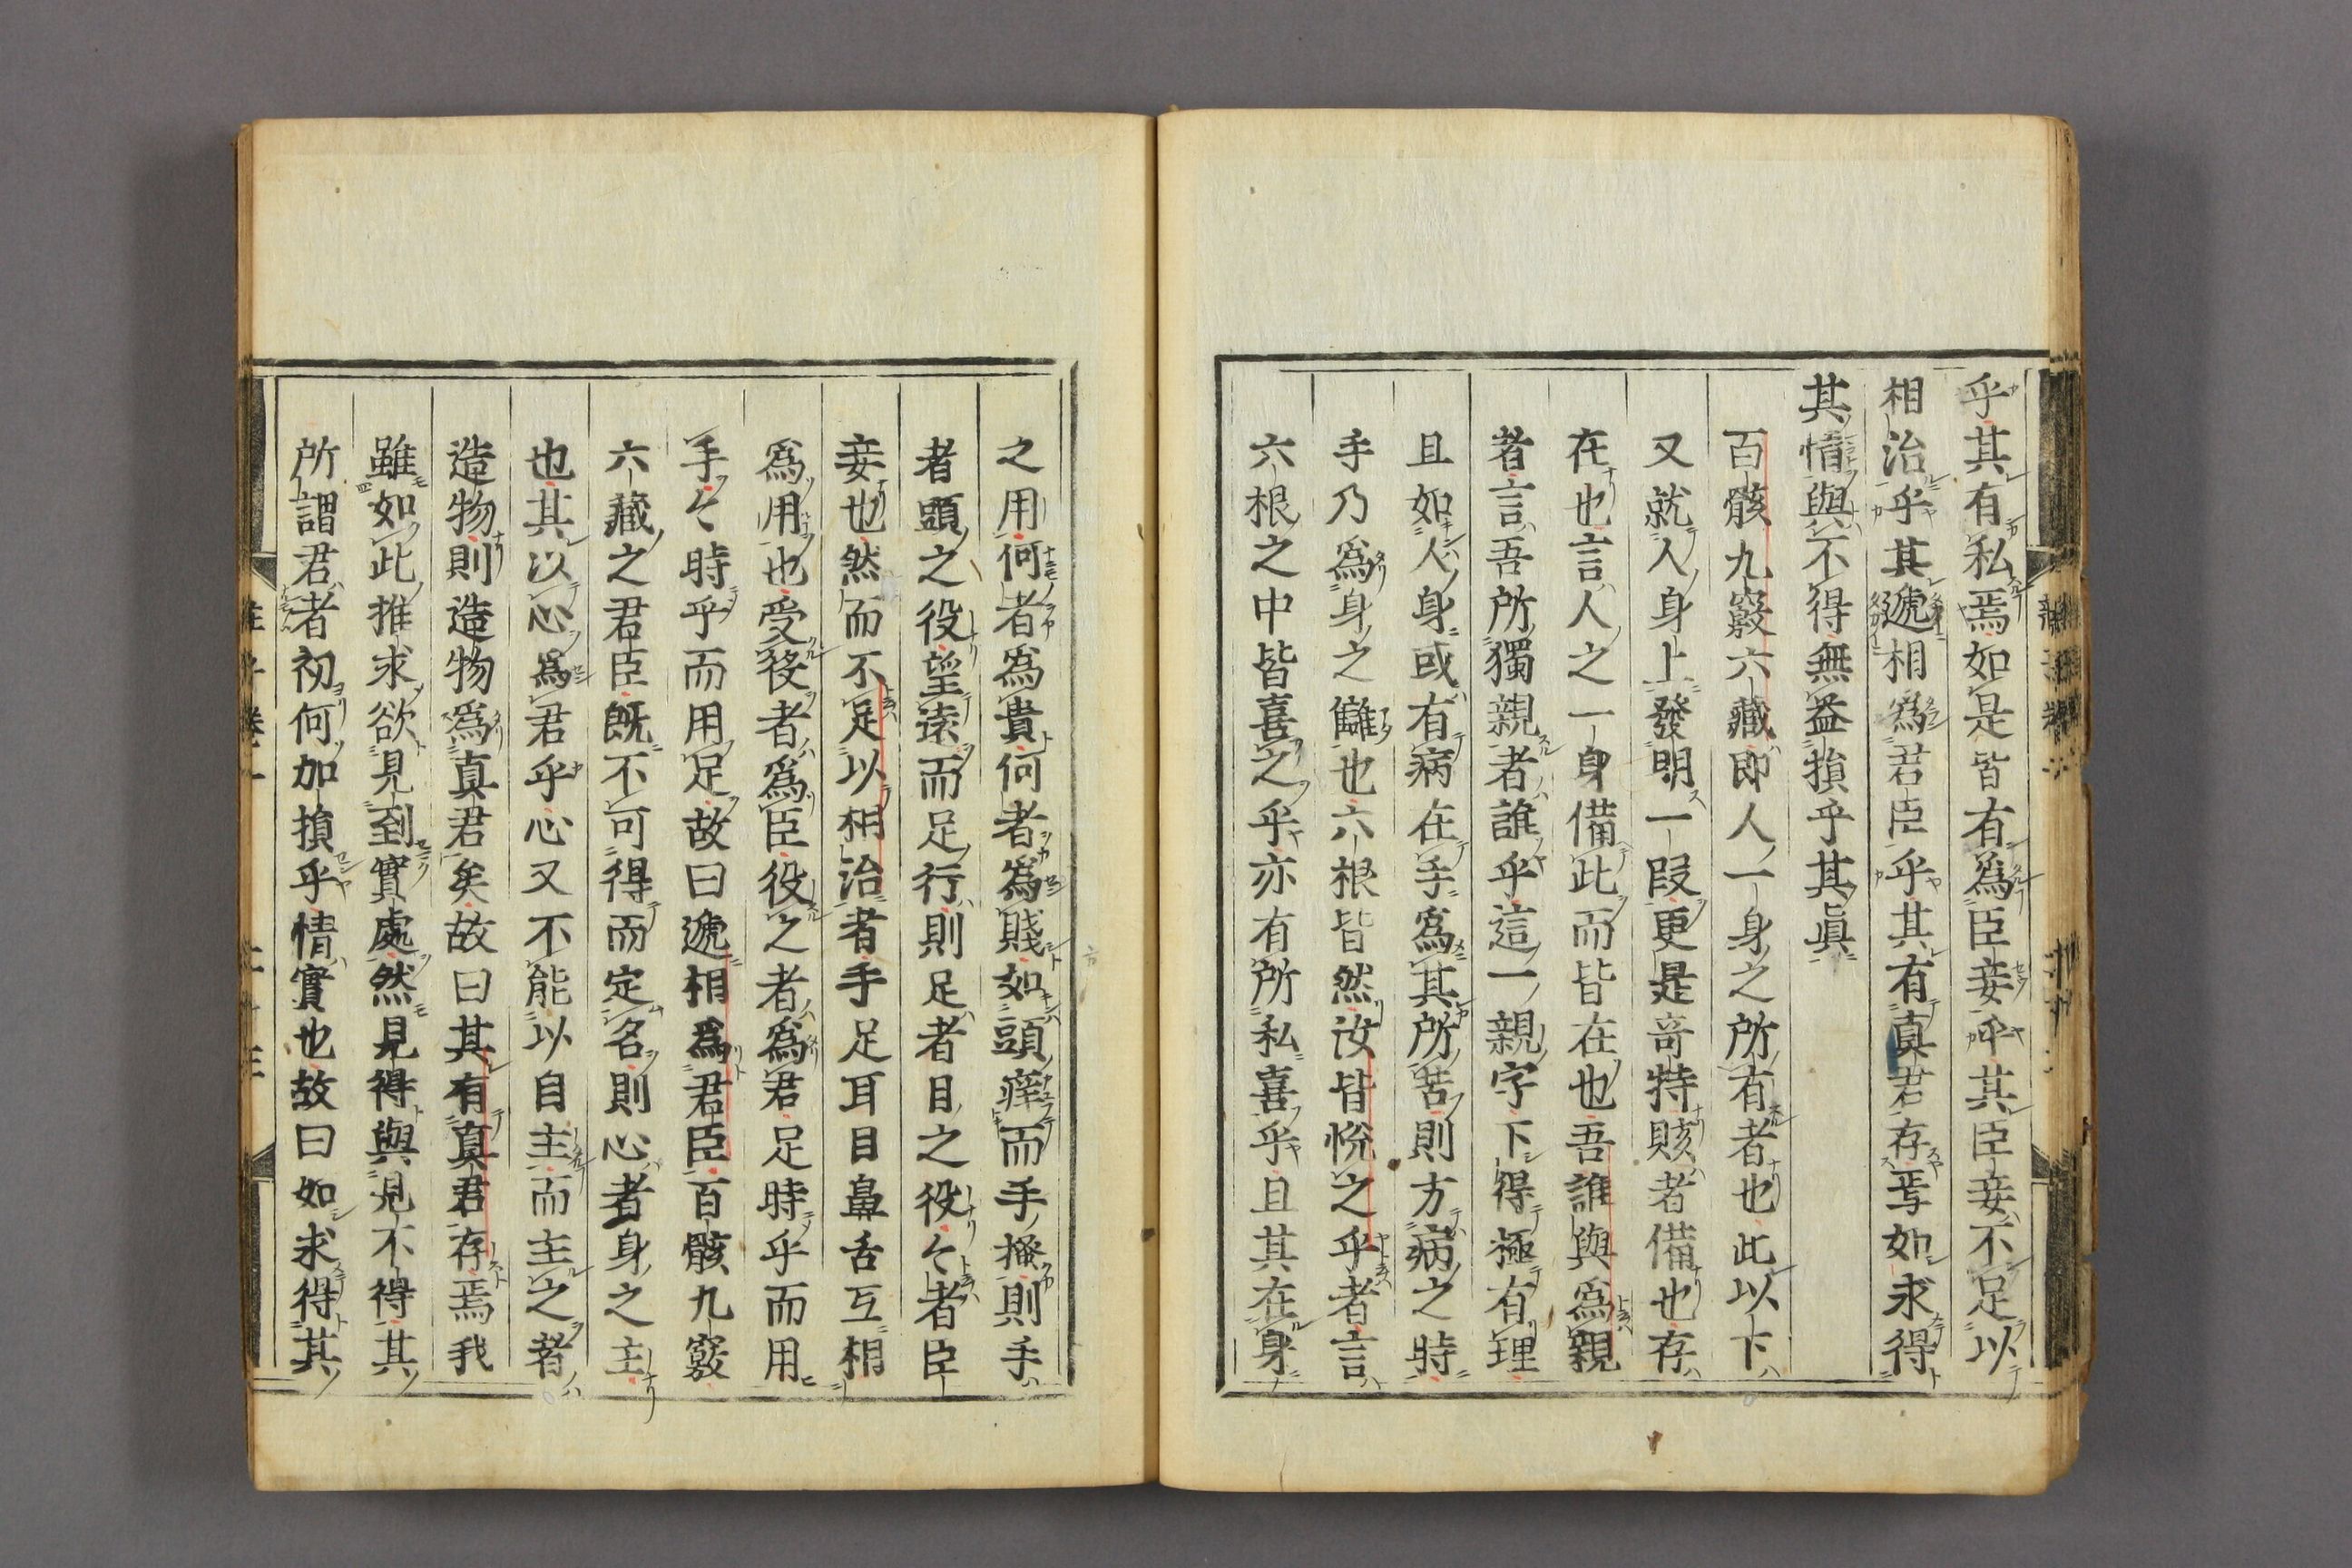 乎其有私焉如是皆有爲臣妾乎其臣妾不足以
相治乎其遞相爲君臣乎其有真君存焉如求得
其情與不得無益損乎其眞
百骸九竅六藏即人一身之所有者也此以下
又就人身上發明一段更是竒特賅者備也存
在也言人之一身備此而皆在也吾誰與爲親
者言吾所獨親者誰乎這一親字下得極有理
且如人身或有病在手爲其所苦則方病之時
手乃爲身之讎也六根皆然汝皆悅之乎者言
六根之中皆喜之乎亦有所私喜乎且其在身
之用何者爲貴何者爲賤如頭痒而手搔則手
者頭之役望遠而足行則足者目之役々者臣
妾也然而不足以相治者手足耳目鼻舌互相
爲用也受役者爲臣役之者爲君足時乎而用
手々時乎而用足故曰遞相爲君臣百骸九竅
六藏之君臣既不可得而定名則心者身之主
也其以心爲君乎心又不能以自主而主之者
造物則造物爲真君矣故曰其有真君存焉我
雖如此推求欲見到實處然見得與見不得其
所謂君者初何加損乎情實也故曰如求得其